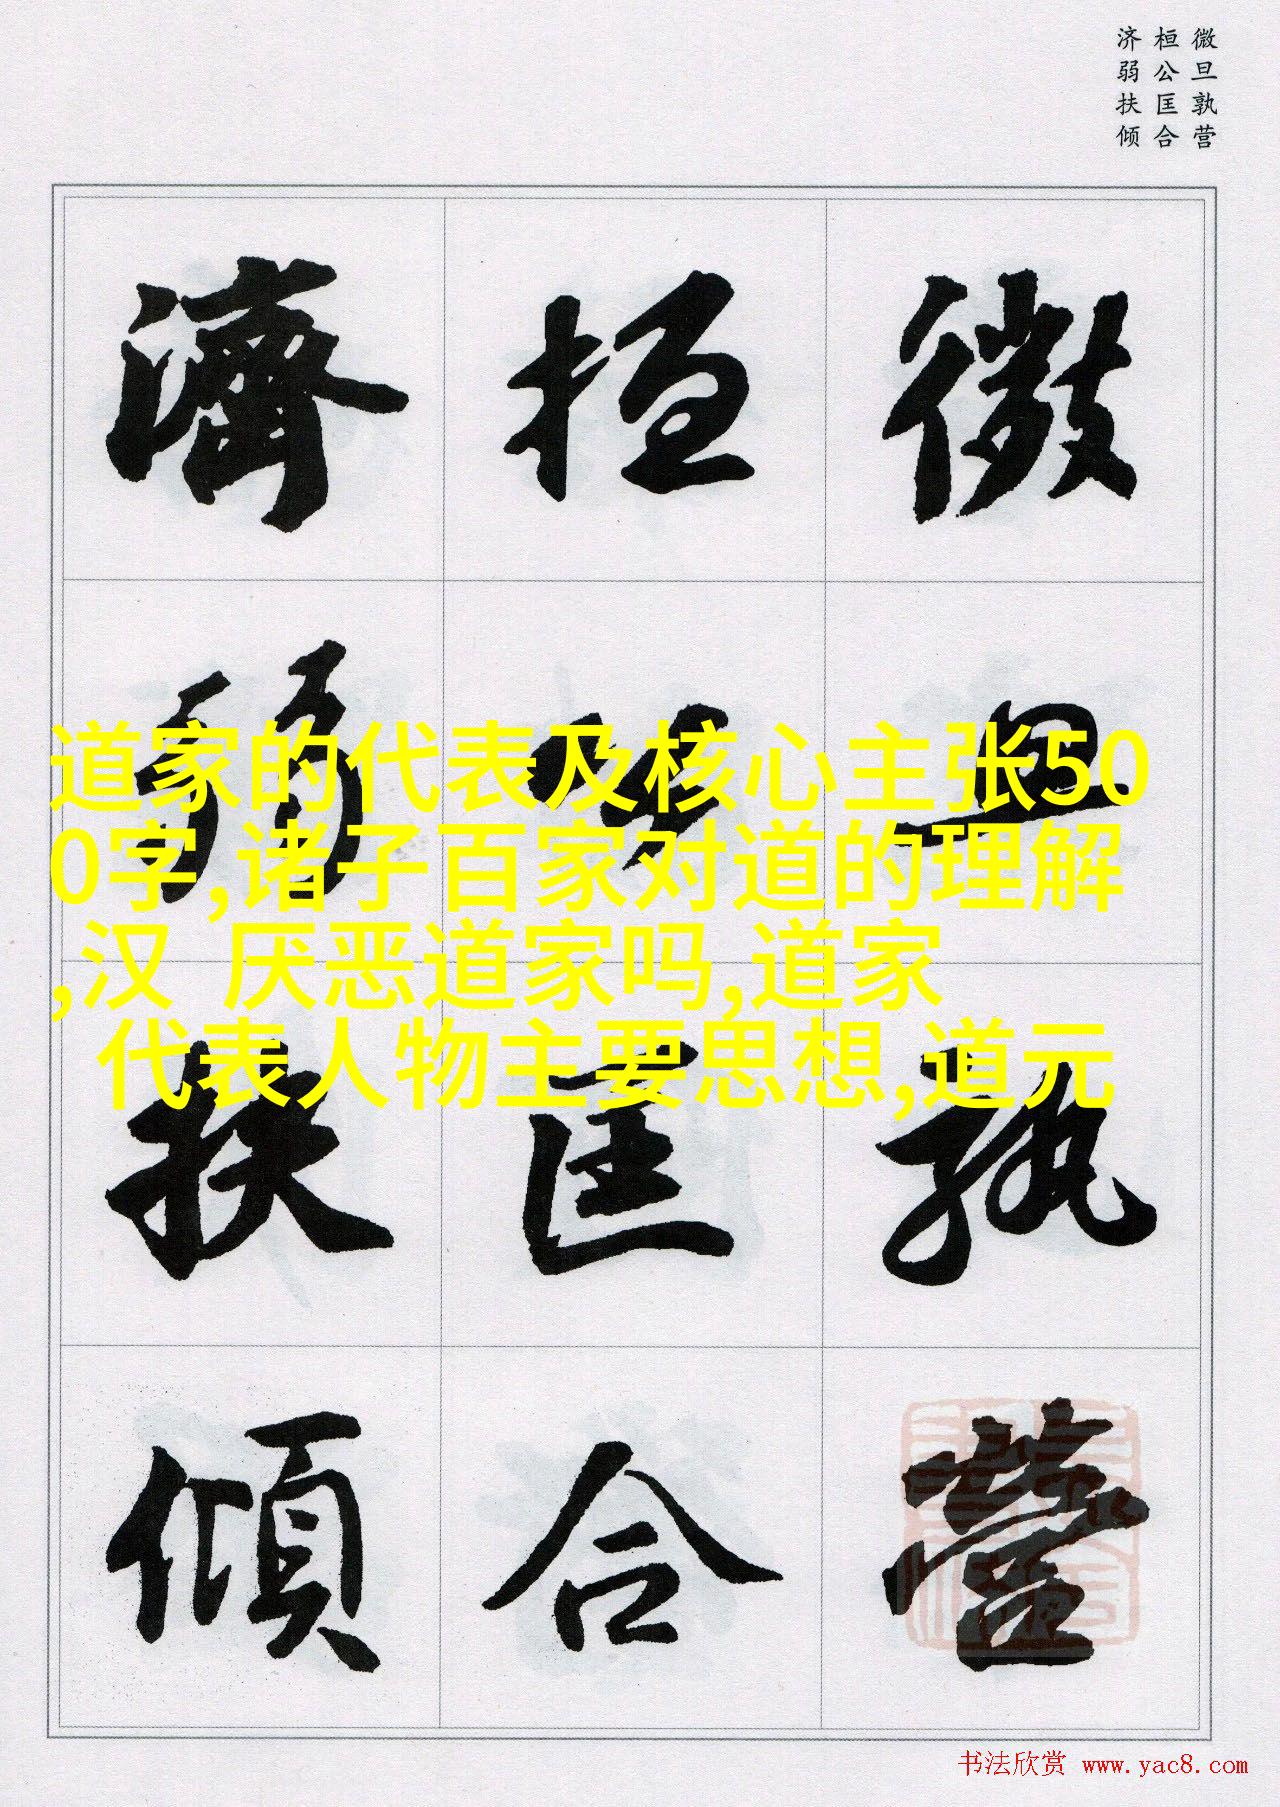 微旦孰营
桓公匡合
济弱扶倾
微旦孰營
桓公匡合
濟弱扶傾
道家的代表及核心主张50
0字,诸子百家对道的理解
,汉 厌恶道家吗,道家
代表人物主要思想,道元
书法欣赏 www.yac8.com